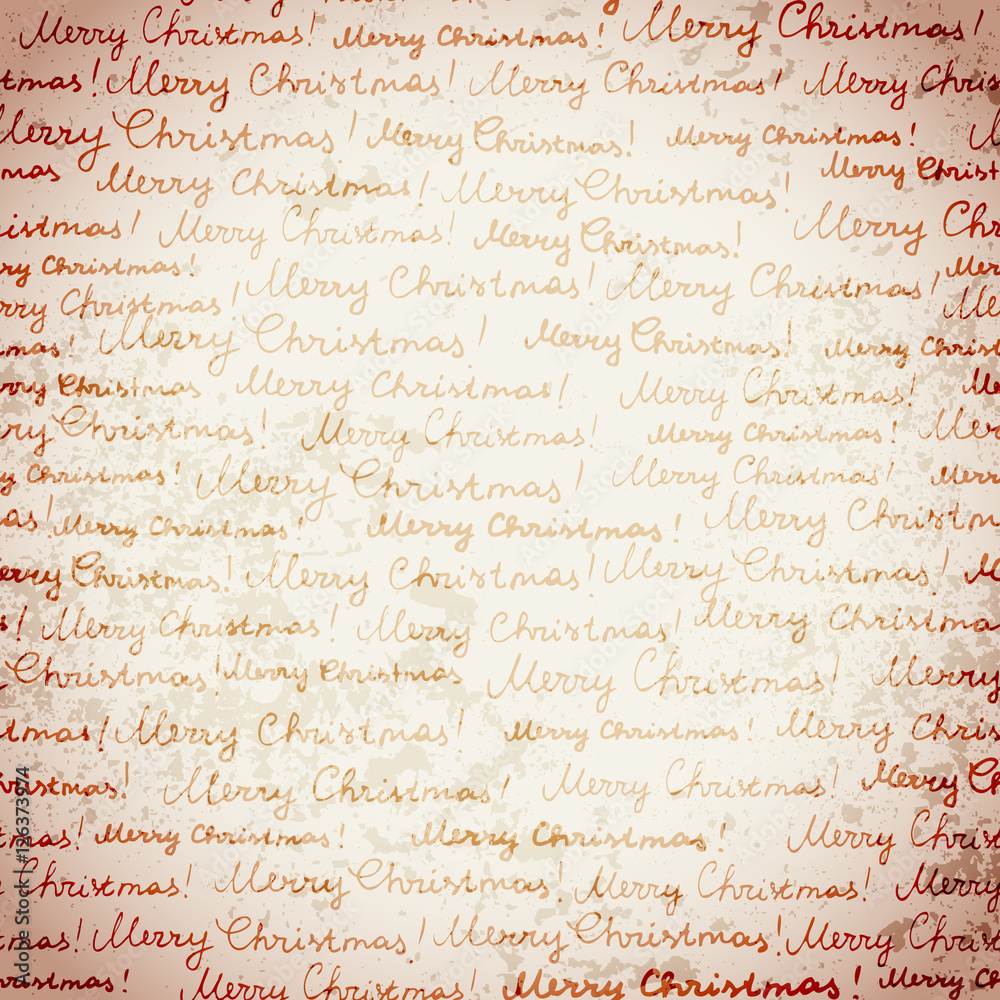 Merry Christmas! Merry Christmas! Merry Christmas!
tmas! Merry Christmas! Merry Christmas! Merry Chris
Merry Christmas! Merry Christmas! Merry Christmas!
mas Merry Christmas! Merry Christmas! Merry Christ
istmas! Merry Christmas! Merry Christmas! Merry Chr
ry Christmas! Merry Christmas! Merry Christmas! Mer
erry Christmas! Mer
tmas! Merry Christmas! Merry Christmas! Merry Christ
erry Christmas Merry Christmas! Merry Christmas! Me
rry Christmas! Merry Christmas! Merry Christmas! Mer
y Christmas! Merry Christmas! Merry Christmas! Merr
mas! Merry Christmas! Merry Christmas! Merry Christm
erry Christmas! Merry Christmas! Merry Christmas! M
s! Merry Christmas! Merry Christmas! Merry Christma
Christmas! Merry Christmas Merry Christmas! Merry
tmas! Merry Christmas! Merry Christmas! Merry Chris
Christmas! Merry Christmas! Merry Christmas! Merry C
tmas! Merry Christmas! Merry Christmas! Merry Christ
Christmas! Merry Christmas! Merry Christmas! Merry
tmas! Merry Christmas! Merry Christmas! Merry Christ
ristmas! Merry Christmas! Merry Christmas! Merry Chris
Adobe Stock | #126373974